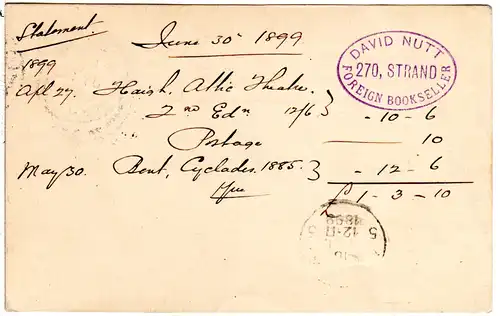 Statement.
June 30 1899
DAVID NUTT
270, STRAND
FOREIGN BOOKSELLER
1899
Apl 27. Haigh, Attic Theatre
2nd Edn 12/6 } - 10 - 6
Postage 10
May 30. Bent, Cyclades. 1885. } - 12 - 6
£ 1 - 3 - 10
5
12-
1899